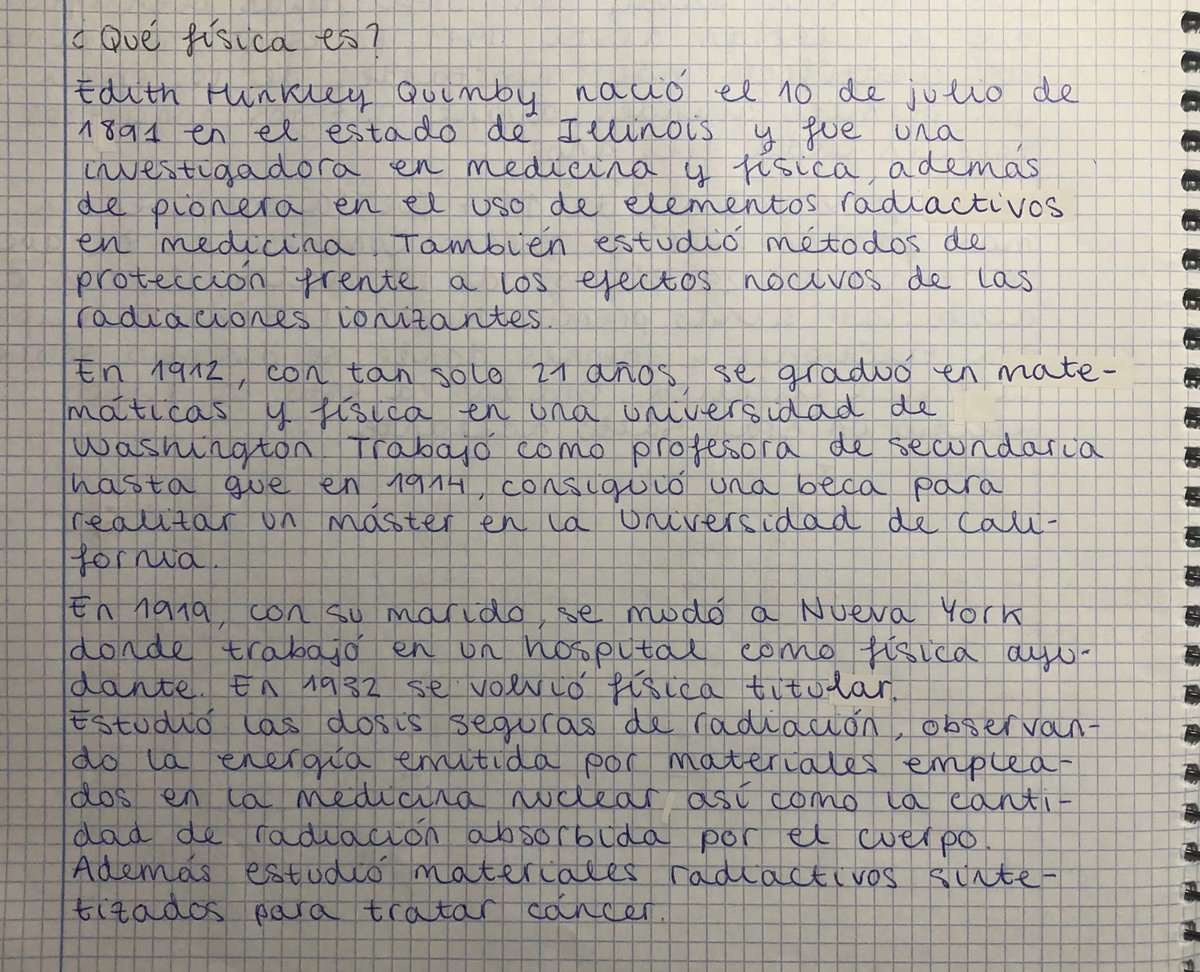 ¿Qué física es?
Edith Hinkley Quimby nació el 10 de julio de
1891 en el estado de Illinois y fue una
investigadora en medicina y física, además
de pionera en el uso de elementos radiactivos
en medicina. También estudió métodos de
protección frente a los efectos nocivos de las
radiaciones ionizantes.
En 1912, con tan solo 21 años, se graduó en mate-
máticas y física en una universidad de
Washington. Trabajó como profesora de secundaria
hasta que en 1914, consiguió una beca para
realizar un máster en la Universidad de Cali-
fornia.
En 1919, con su marido, se mudó a Nueva York
donde trabajó en un hospital como física ayu-
dante. En 1932 se volvió física titular.
Estudió las dosis seguras de radiación, observan-
do la energía emitida por materiales emplea-
dos en la medicina nuclear, así como la canti-
dad de radiación absorbida por el cuerpo.
Además estudió materiales radiactivos sinte-
tizados para tratar cáncer.